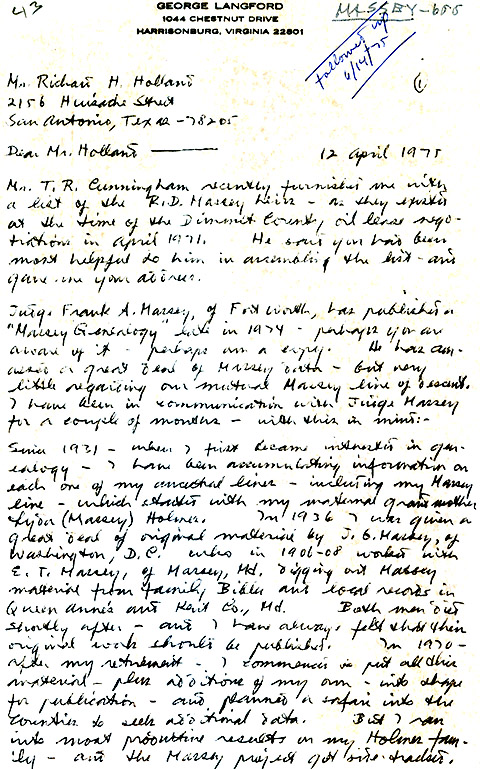 43
GEORGE LANGFORD
1044 CHESTNUT DRIVE
HARRISONBURG, VIRGINIA 22801
MASSEY-655
followed up
6/14/75
①
Mr. Richard H. Holland
2156 Huisache Street
San Antonio, Texas - 78205
Dear Mr. Holland
12 April 1975
Mr. T. R. Cunningham recently furnished me with
a list of the R.D. Massey heirs - as they existed
at the time of the Dimmit County oil lease nego-
tiations in April 1971. He said you had been
most helpful to him in assembling the list - and
gave me your address.
Judge Frank A. Massey, of Fort Worth, has published a
"Massey Genealogy" late in 1974 - perhaps you are
aware of it - perhaps own a copy. He has am-
assed a great deal of Massey data - but very
little regarding our mutual Massey line of descent.
I have been in communication with Judge Massey
for a couple of months - with this in mind:-
Since 1931 - when I first became interested in gen-
ealogy - I have been accumulating information on
each one of my ancestral lines - including my Massey
line - which started with my maternal grandmother
Lydia (Massey) Holmes. In 1936 I was given a
great deal of original material by J. G. Massey, of
Washington, D.C. who in 1906-08 worked with
E. T. Massey, of Massey, Md. digging out Massey
material from family Bibles and local records in
Queen Anne's and Kent Co., Md. Both men died
shortly after - and I have always felt that their
original work should be published. In 1970 -
after my retirement - I commenced to put all this
material - plus additions of my own - into shape
for publication - and planned a safari into the
counties to seek additional data. But I ran
into most productive results on my Holmes fam-
ily - and the Massey project got side-tracked.